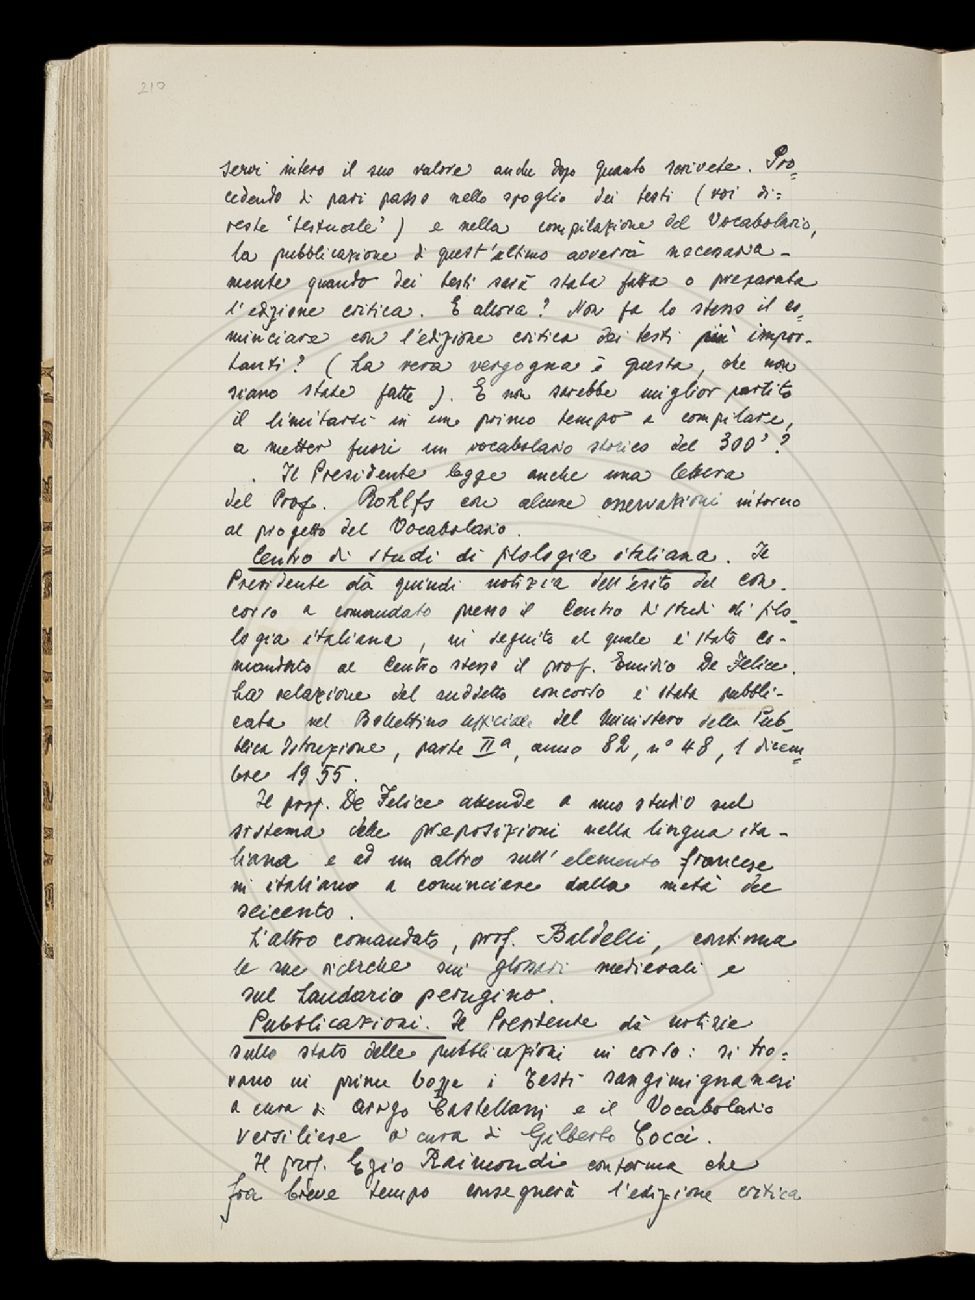 210
servi intero il suo valore anche dopo quanto scrivete. Pro=
cedendo di pari passo nello spoglio dei testi (voi di=
reste 'testuale') e nella compilazione del Vocabolario,
la pubblicazione di quest'ultimo avverrà necessaria-
mente quando dei testi sarà stata fatta o preparata
l'edizione critica. E allora? Non fa lo stesso il co=
minciare con l'edizione critica dei testi più impor-
tanti? (La vera vergogna è questa, che non
siano state fatte). E non sarebbe miglior partito
il limitarsi in un primo tempo a compilare,
a metter fuori un vocabolario storico del 300'?
Il Presidente legge anche una lettera
del Prof. Rohlfs con alcune osservazioni intorno
al progetto del Vocabolario.
Centro di studi di filologia italiana. Il
Presidente dà quindi notizia dell'esito del con-
corso a comandato presso il Centro di studi di filo=
logia italiana, in seguito al quale è stato co-
mandato al Centro stesso il prof. Emidio De Felice.
La relazione del suddetto concorso è stata pubbli-
cata nel Bollettino ufficiale del Ministero della Pub=
blica Istruzione, parte IIª, anno 82, n° 48, 1 dicem=
bre 1955.
Il prof. De Felice attende a uno studio sul
sistema delle preposizioni nella lingua ita-
liana e ad un altro sull'elemento francese
in italiano a cominciare dalla metà del
seicento.
L'altro comandato, prof. Baldelli, continua
le sue ricerche sui glossari medievali e
sul Laudario perugino.
Pubblicazioni. Il Presidente dà notizie
sullo stato delle pubblicazioni in corso: si tro=
vano in prime bozze i Testi sangimignanesi
a cura di Arrigo Castellani e il Vocabolario
versiliese a cura di Gilberto Cocci.
Il prof. Ezio Raimondi conferma che
fra breve tempo consegnerà l'edizione critica